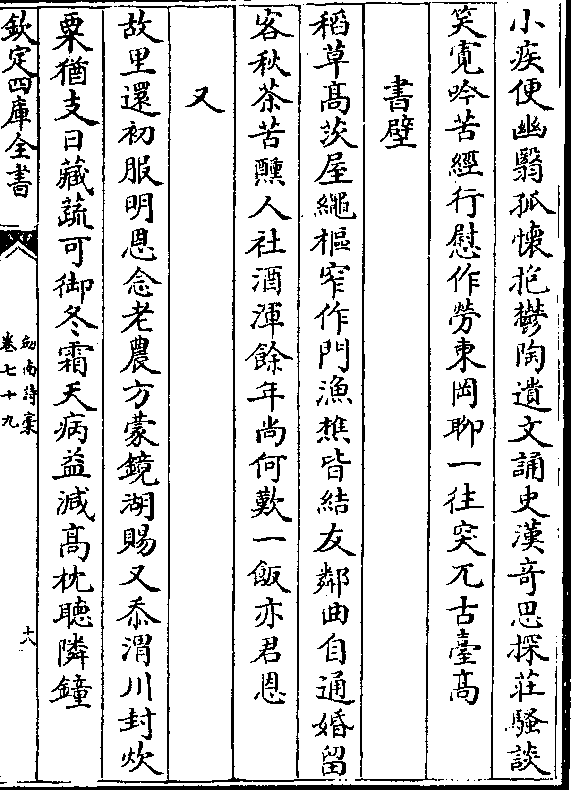 小疾便幽翳孤懷抱鬱陶遺文誦史漢奇思探莊騷談
笑寛吟苦經行慰作勞東岡聊一往突兀古臺高
書壁
稻草髙茨屋繩樞窄作門漁樵皆結友鄰曲自通婚留
客秋茶苦醺人社酒渾餘年尚何歎一飯亦君恩
又
故里還初服明恩念老農方蒙鏡湖賜又忝渭川封炊
粟猶支日藏蔬可御冬霜天病益減髙枕聽隣鐘
欽定四庫全書
劔南詩稾
卷七十九
十八